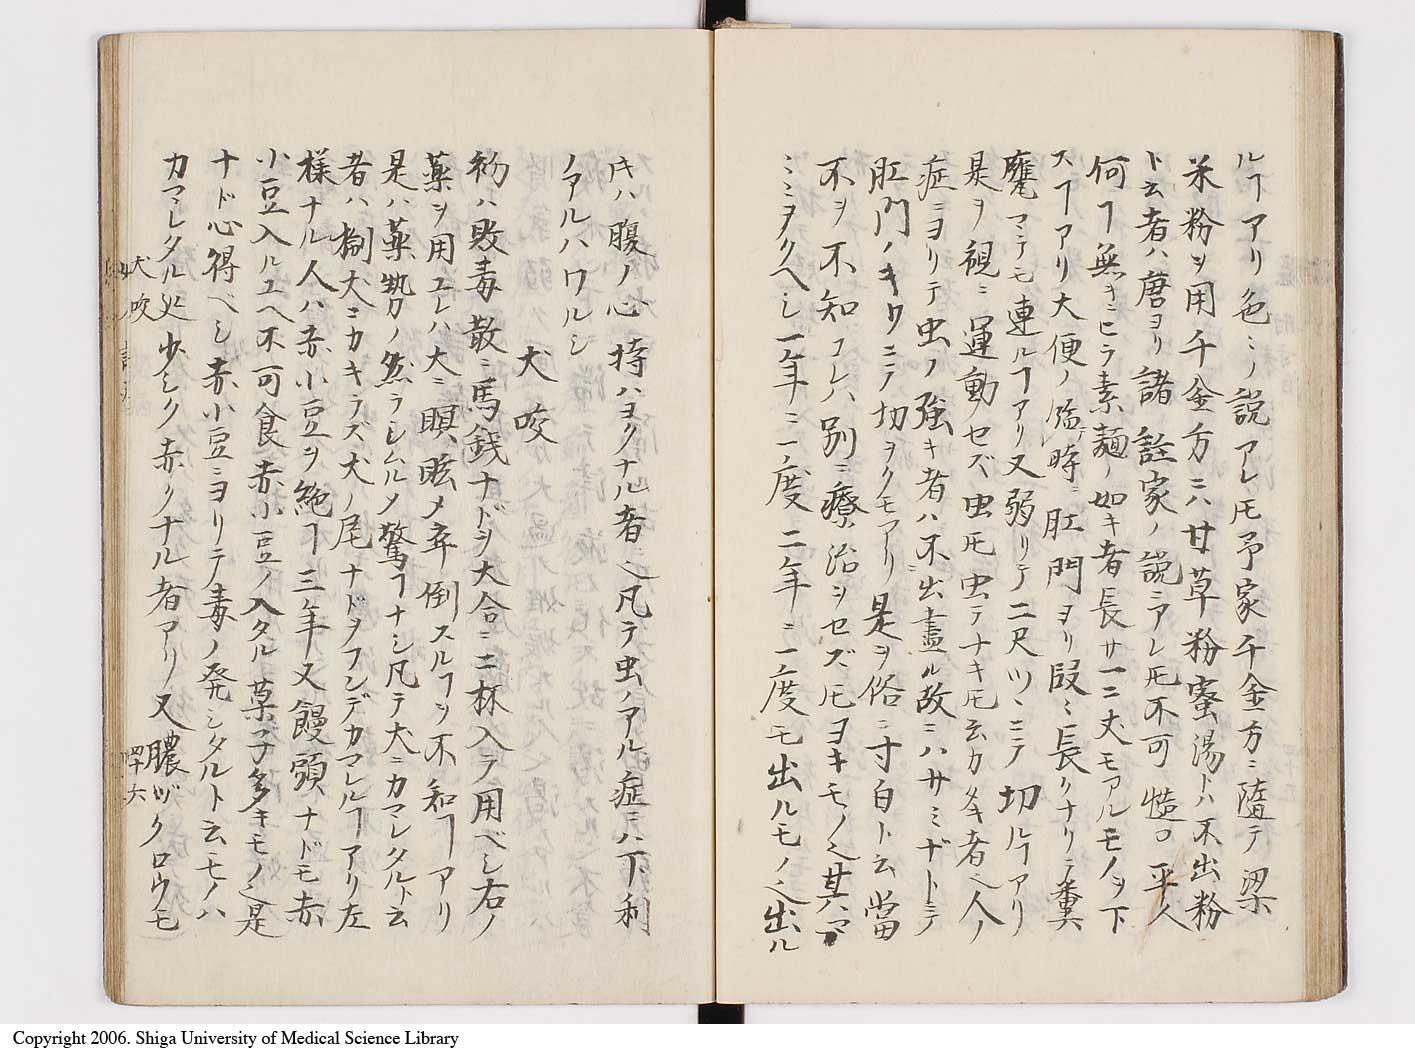 ルヿアリ色〻ノ説アレ𪜈予家千金方ニ隨テ梁
米粉ヲ用千金方ニハ甘草粉蜜湯トハ不出粉
ト云者ハ唐ヨリ諸註家ノ説ニアレ𪜈不可慥口平人
何ヿ無キニヒラ素麺ノ如キ者長サ一二丈モアルモノヲ下
スヿアリ大便ノ時ニ肛門ヨリ段〻長クナリテ糞
マテモ連ルヿアリ又弱リテ二尺ツヽニテ切ルヿアリ
是ヲ視ニ運動セズ虫𪜈虫テナキ𪜈云カタキ者也人ノ
症ニヨリテ虫ノ強キ者ハ不出盡ル故ニハサミナドニテ
肛門ノキワニテ切ヲクモアリ是ヲ俗ニ寸白ト云當
不ヲ不知コレハ別ニ療治ヲセズ𪜈ヨキモノ也其マヽ
ニミヲクヘシ一年ニ一度二年ニ一度モ出ルモノ也出ル
𪜈ハ腹ノ心持ハヨクナル者也凡テ虫ノアル症ニハ下利
ノアルハワルシ
犬咬
初ハ敗毒散ニ馬錢ナドヲ大合ニ二杯入テ用ベシ右ノ
藥ヲ用ユレハ大ニ瞑眩メ卒倒スルヿヲ不知ヿアリ
是ハ藥勢ノ然ラシムルメ驚ヿナシ凡テ犬ニカマレタルト云
者ハ猘犬ニカキラズ犬ノ尾ナドヲフンデカマレルヿアリ左
様ナル人ハ赤小豆ヲ絶ヿ三年又饅頭ナドモ赤
小豆入ルユヘ不可食赤小豆ノ入タル菓子多キモノ也是
ナド心得ベシ赤小豆ニヨリテ毒ノ発シタルト云モノハ
カマレタル处少シク赤クナル者アリ又膿ヅクロウモ
犬咬
四十六
Copyright 2006. Shiga University of Medical Science Library